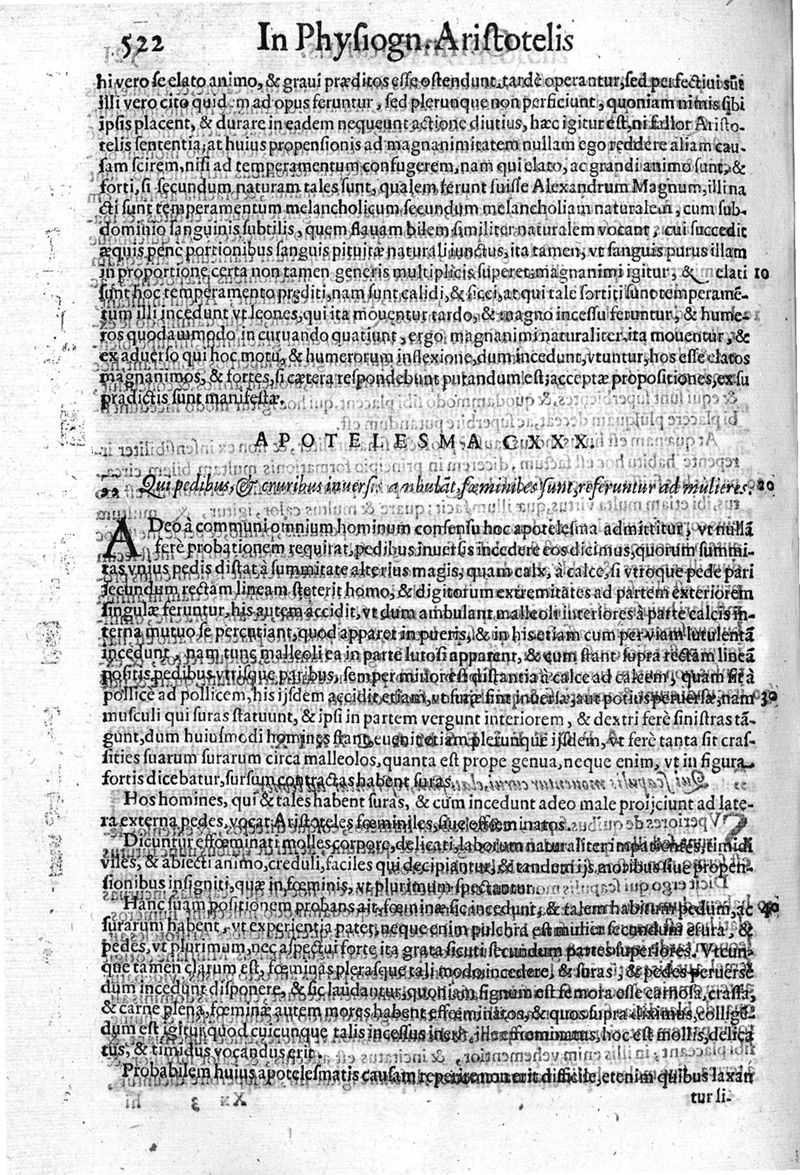 522 In Physiogn. Aristotelis
hi vero se elato animo, & graui præditos esse ostendunt tardè operantur, sed perfectiui sũt
illi vero cito quidem ad opus feruntur, sed plerunque non perficiunt, quoniam nimis sibi
ipsis placent, & durare in eadem nequeunt actione diutius, hæc igitur est, ni fallor Aristo-
telis sententia, at huius propensionis ad magnanimitatem nullam ego reddere aliam cau-
sam scirem, nisi ad temperamentum confugerem, nam qui elato, ac grandi animo sunt, &
forti, si secundum naturam tales sunt, qualem ferunt fuisse Alexandrum Magnum, illina
cti sunt temperamentum melancholicum secundum melancholiam naturalem, cum sub-
dominio sanguinis subtilis, quem flauam bilem similiter naturalem vocant, cui succedit
æquis penè portionibus sanguis pituitæ naturali iunctus, ita tamen, vt sanguis purus illam
in proportione certa non tamen generis multiplicis superet, magnanimi igitur, & elati 10
sunt hoc temperamento præditi, nam sunt calidi, & sicci, at qui tale sortiti sunt temperamē-
tum illi incedunt vt leones, qui ita mouentur tardo, & magno incessu feruntur, & hume-
ros quodammodo in curuando quatiunt, ergo magnanimi naturaliter ita mouentur, &
ex aduerso qui hoc motu, & humerorum inflexione, dum incedunt, vtuntur, hos esse elatos
magnanimos, & fortes, si cætera respondebunt putandum est; acceptæ propositiones, ex su
prædictis sunt manifestæ.
APOTELESMA CXXX.
22 Qui pedibus, & cruribus inuersis ambulāt, fœminibes sunt, referuntur ad mulieres. 20
ADeo à communi omnium hominum consensu hoc apotelesma admittitur, vt nullā
ferè probationem requirat, pedibus inuersis incedere eos dicimus, quorum summi-
tas vnius pedis distat à summitate alterius magis, quam calx, à calce, si vtroque pede pari
secundum rectam lineam steterit homo, & digitorum extremitates ad partem exteriorem
singulæ feruntur, his autem accidit, vt dum ambulant malleoli interiores à parte calcis in-
terna mutuo se percutiant, quod apparet in pueris, & in his etiam cum per viam lutulentā
incedunt, nam tunc malleoli ea in parte lutosi apparent, & cum stant supra rectam lineā
positis pedibus vtrisque paribus, semper minor est distantia à calce ad calcem, quam sit à
pollice ad pollicem, his ijsdem accidit etiam, vt suræ sint inuersæ, aut potius peruersæ, nam 30
musculi qui suras statuunt, & ipsi in partem vergunt interiorem, & dextri ferè sinistras tā-
gunt, dum huiusmodi homines stant, euenit etiam plerunque ijsdem, vt ferè tanta sit cras-
sities suarum surarum circa malleolos, quanta est prope genua, neque enim, vt in figura
fortis dicebatur, sursum contractas habent suras.
Hos homines, qui & tales habent suras, & cum incedunt adeo male proijciunt ad late-
ra externa pedes, vocat Aristoteles fœminiles, siue effœminatos.
Dicuntur effœminati molles corpore, delicati, laborum naturaliter impatientes, timidi
viles, & abiecti animo, creduli, faciles qui decipiantur, & tandem ijs moribus siue propen-
sionibus insigniti, quæ in fœminis, vt plurimum spectantur.
Hanc suam positionem probans ait, fœminæ sic incedunt, & talem habitum pedum, ac 40
surarum habent, vt experientia patet, neque enim pulchra est mulier secundum asura, &
pedes, vt plurimum, nec aspectui forte ita grata sicuti secundum partes superiores. Vtcun-
que tamen clarum est, fœminas plerasque tali modo incedere, & suras, & pedes peruerse
dum incedunt disponere, & sic laudantur, quoniam signum est femora esse carnosa, crassa,
& carne plena, fœminæ autem mores habent effœminatos, & quos supra diximus, collige-
dum est igitur quod cuicunque talis incessus inest, ille effœminatus, hoc est mollis, delica
tus, & timidus vocandus erit.
Probabilem huius apotelesmatis causam reperire non erit difficile, etenim quibus laxan
tur li-